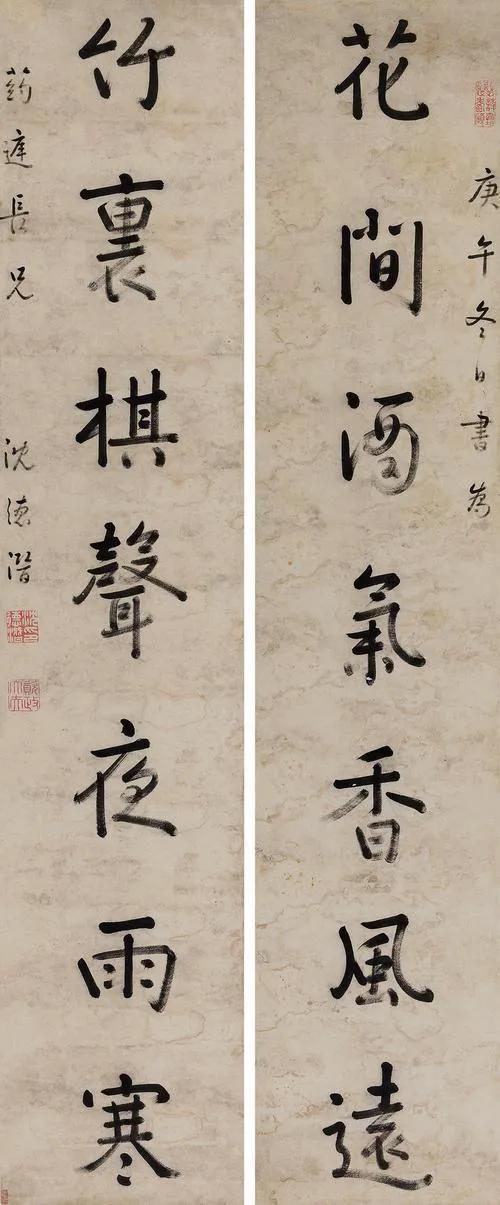 庚午冬日書為
花間酒氣香風遠
竹裏棋聲夜雨寒
葯遲長兄
沈德潛
沈德潛